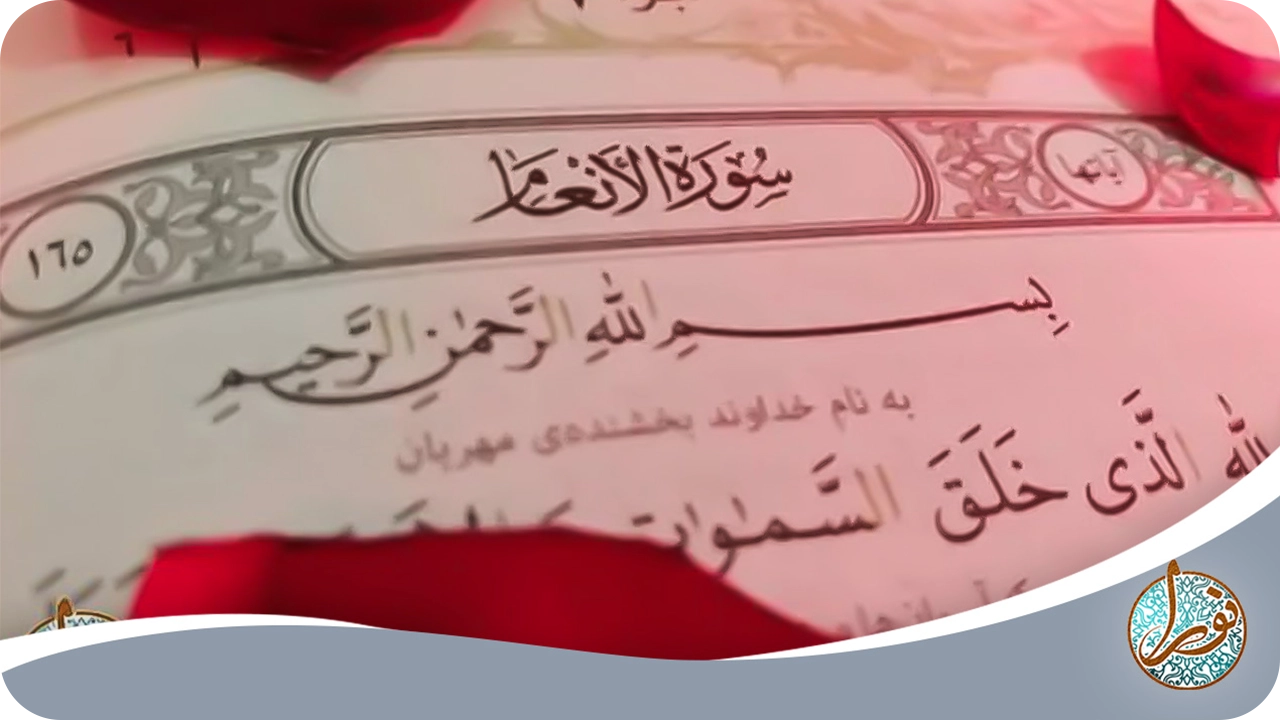 آیاتها
سُورَةُ الْأَنْعَامِ
١٦٥
بِسْمِ اللَّهِ الرَّحْمٰنِ الرَّحِيمِ
به نام خداوند بخشنده‌ی مهربان
للهِ الَّذی خَلَقَ السَّمٰوٰاتِ